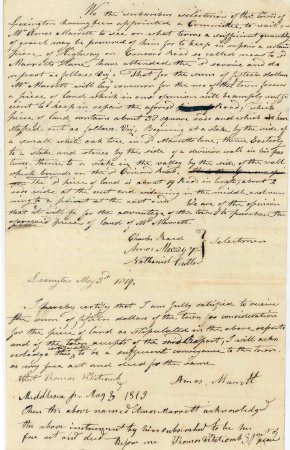 We the subscribers selectmen of the town of
Lexington having been appointed a Committee to wait on
Mr Amos Marrett to see on what terms a sufficient quantity
of gravel may be procured of him for to keep in repair a certain
piece of Highway on Concord Road so called near to sd
Marretts place have attended the sd service and do
report as follows Viz; that for the sum of fifteen dollars
Mr Marrett will lay common for the use of the town forever
a piece of land which in our opinion will be amply suffi
cient to keep in repair the aforesd Road, which
piece of land contains about square rods and which
staked out as follows Viz; Beginning at a stake by the side of
a small white oak tree in sd Marretts line, thence Easterly
to a stake and stones by the side of a division wall in his pas
ture thence to a stake in the valley by the side of the wall
which bounds on the sd Concord Road,
The sd piece of land is about 19 Rods in length about 2
rods wide at the west end widening in the middle, and run
ning to a point at the east end. We are of the opinion
that it will be for the advantage of the town to purchase the
aforesaid piece of land of Mr Marrett
Charles Reed
Amos Muzzy Jr
Nathaniel Cutler
Selectmen
Lexington May 3d 1819.
I hereby certify that I am fully satisfied to receive
the sum of fifteen dollars of the town as consideration
for the piece of land as stipulated in the above report
and if the town accepts of the said Report, I will ack
nowledge this to be a sufficient conveyance to the town
as my free act and deed for the same
Attest Thomas Whitcomb Amos Marrett
Middlesex ss. May 3 1813
Then the above named Amos Marrett acknowledged
the above instrument by him subscribed to be his
free act and deed Before me Thomas Whitcomb Just of peace